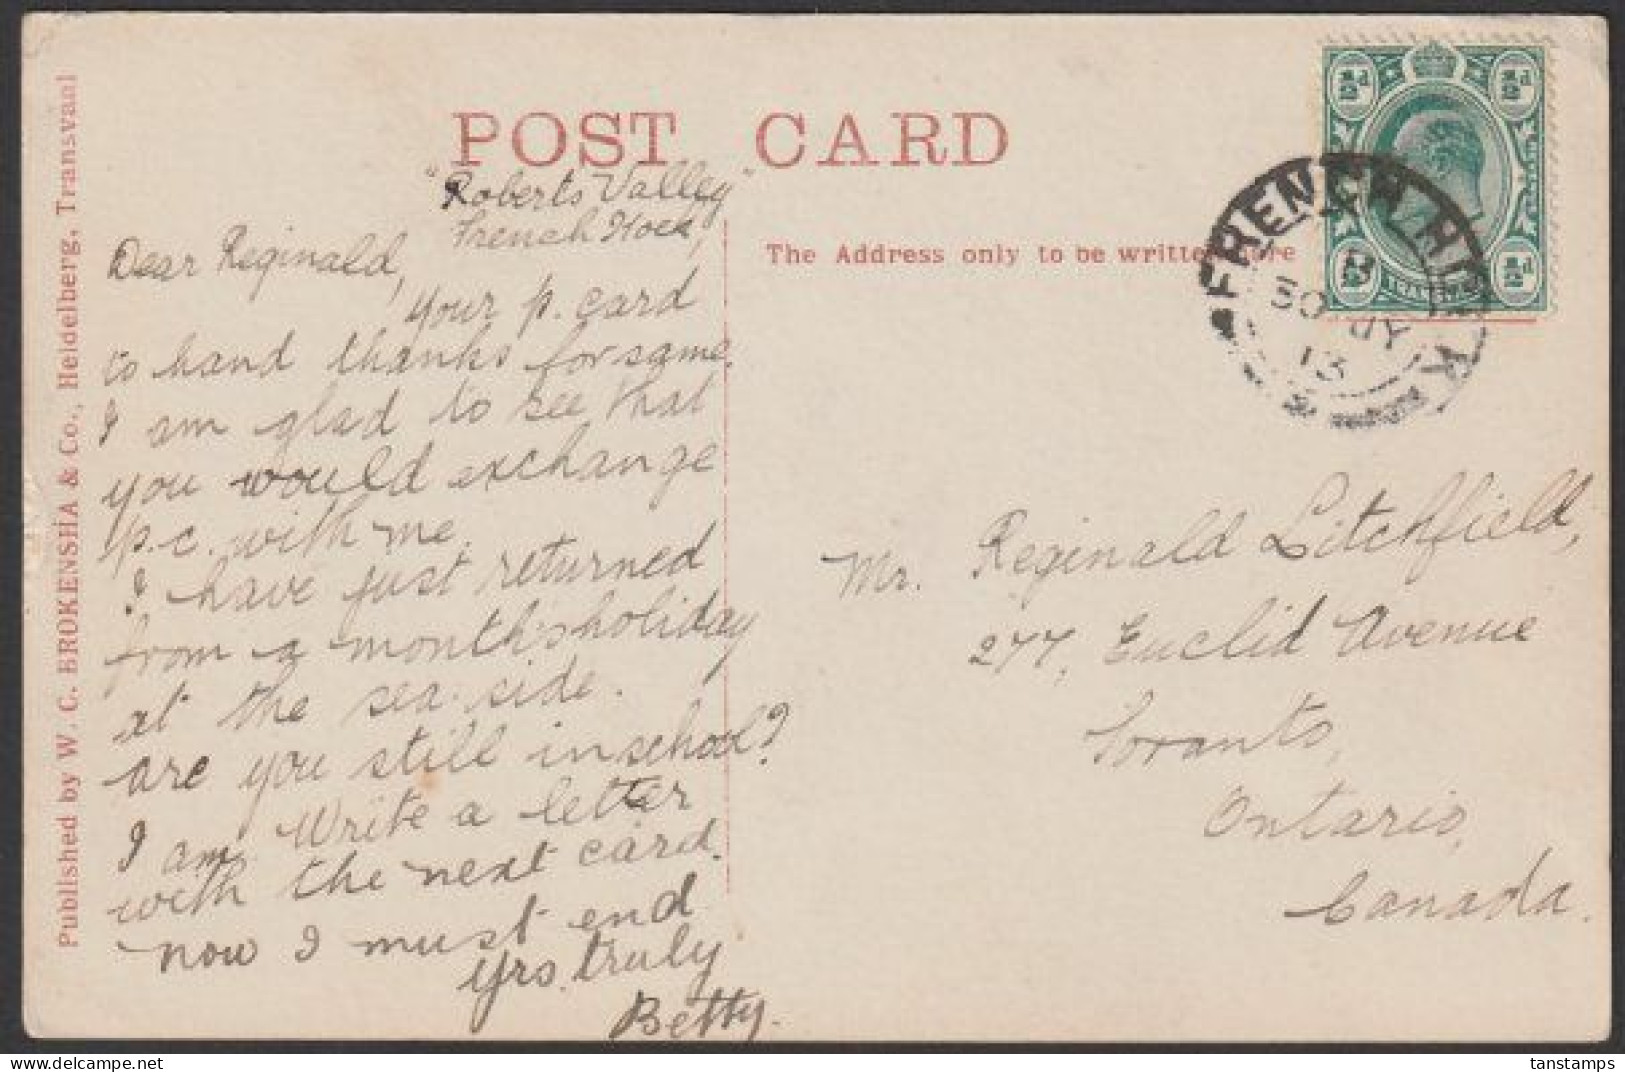 POST CARD
"Roberts Valley"
French Hoek,
Dear Reginald,
your p. card
to hand thanks for same.
I am glad to see that
you would exchange
p.c. with me.
I have just returned
from a month's holiday
at the sea-side.
are you still in school?
I am write a letter
with the next card.
now I must end
yrs. truly
Betty.
Published by W. C. BROKENSHA & Co., Heidelberg, Transvaal
The Address only to be written here
½d ½d
½d ½d
FRENCH HOEK
B
30 JY
13
Mr. Reginald Litchfield,
277, Euclid Avenue
Toronto,
Ontario,
Canada.
tanstamps